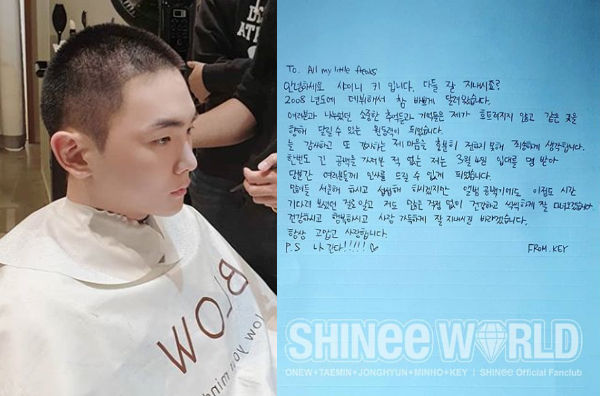 To. All my little freaks
안녕하세요 샤이니 키 입니다. 다들 잘 지내시죠?
2008년도에 데뷔해서 참 바쁘게 달려왔습니다.
여러분과 나누었던 소중한 추억들과 기억들은 제가 흐트러지지 않고 같은 곳을
향해 달릴 수 있는 원동력이 되었습니다.
늘 감사하고 또 감사하는 제 마음을 충분히 전하지 못해 죄송하게 생각합니다.
한번도 긴 공백을 가져본 적 없는 저는 3월 4일 입대를 명 받아
당분간 여러분들께 인사를 드릴 수 없게 되었습니다.
많이들 서운해 하시고 섭섭해 하시겠지만 앨범 공백기에도 이정도 시간
기다려 보셨던 적은 있고 저도 많은 걱정 없이 건강하고 씩씩하게 잘
건강하시고 행복하시고 사랑 가득하게 잘 지내시길 바라겠습니다.
항상 고맙고 사랑합니다.
P.S 나 간다!!!!! ♡
FROM. KEY
BLOW
low your mind
SHINee WORLD
ONEW+TAEMIN+JONGHYUN+MINHO+KEY | SHINee Official Fanclub